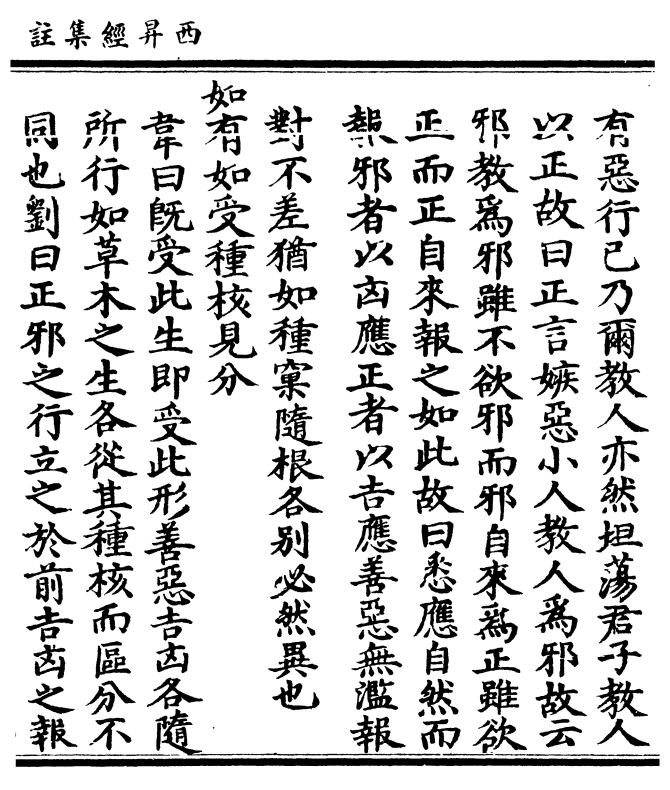 西昇經集註
有惡行己乃爾教人亦然坦蕩君子教人
以正故曰正言嫉惡小人教人爲邪故云
邪教爲邪雖不欲邪而邪自來爲正雖欲
正而正自來報之如此故曰悉應自然而
報邪者以凶應正者以吉應善惡無濫報
對不差猶如種窠隨根各别必然異也
如有如受種核見分
韋曰既受此生即受此形善惡吉凶各隨
所行如草木之生各從其種核而區分不
同也劉曰正邪之行立之於前吉凶之報